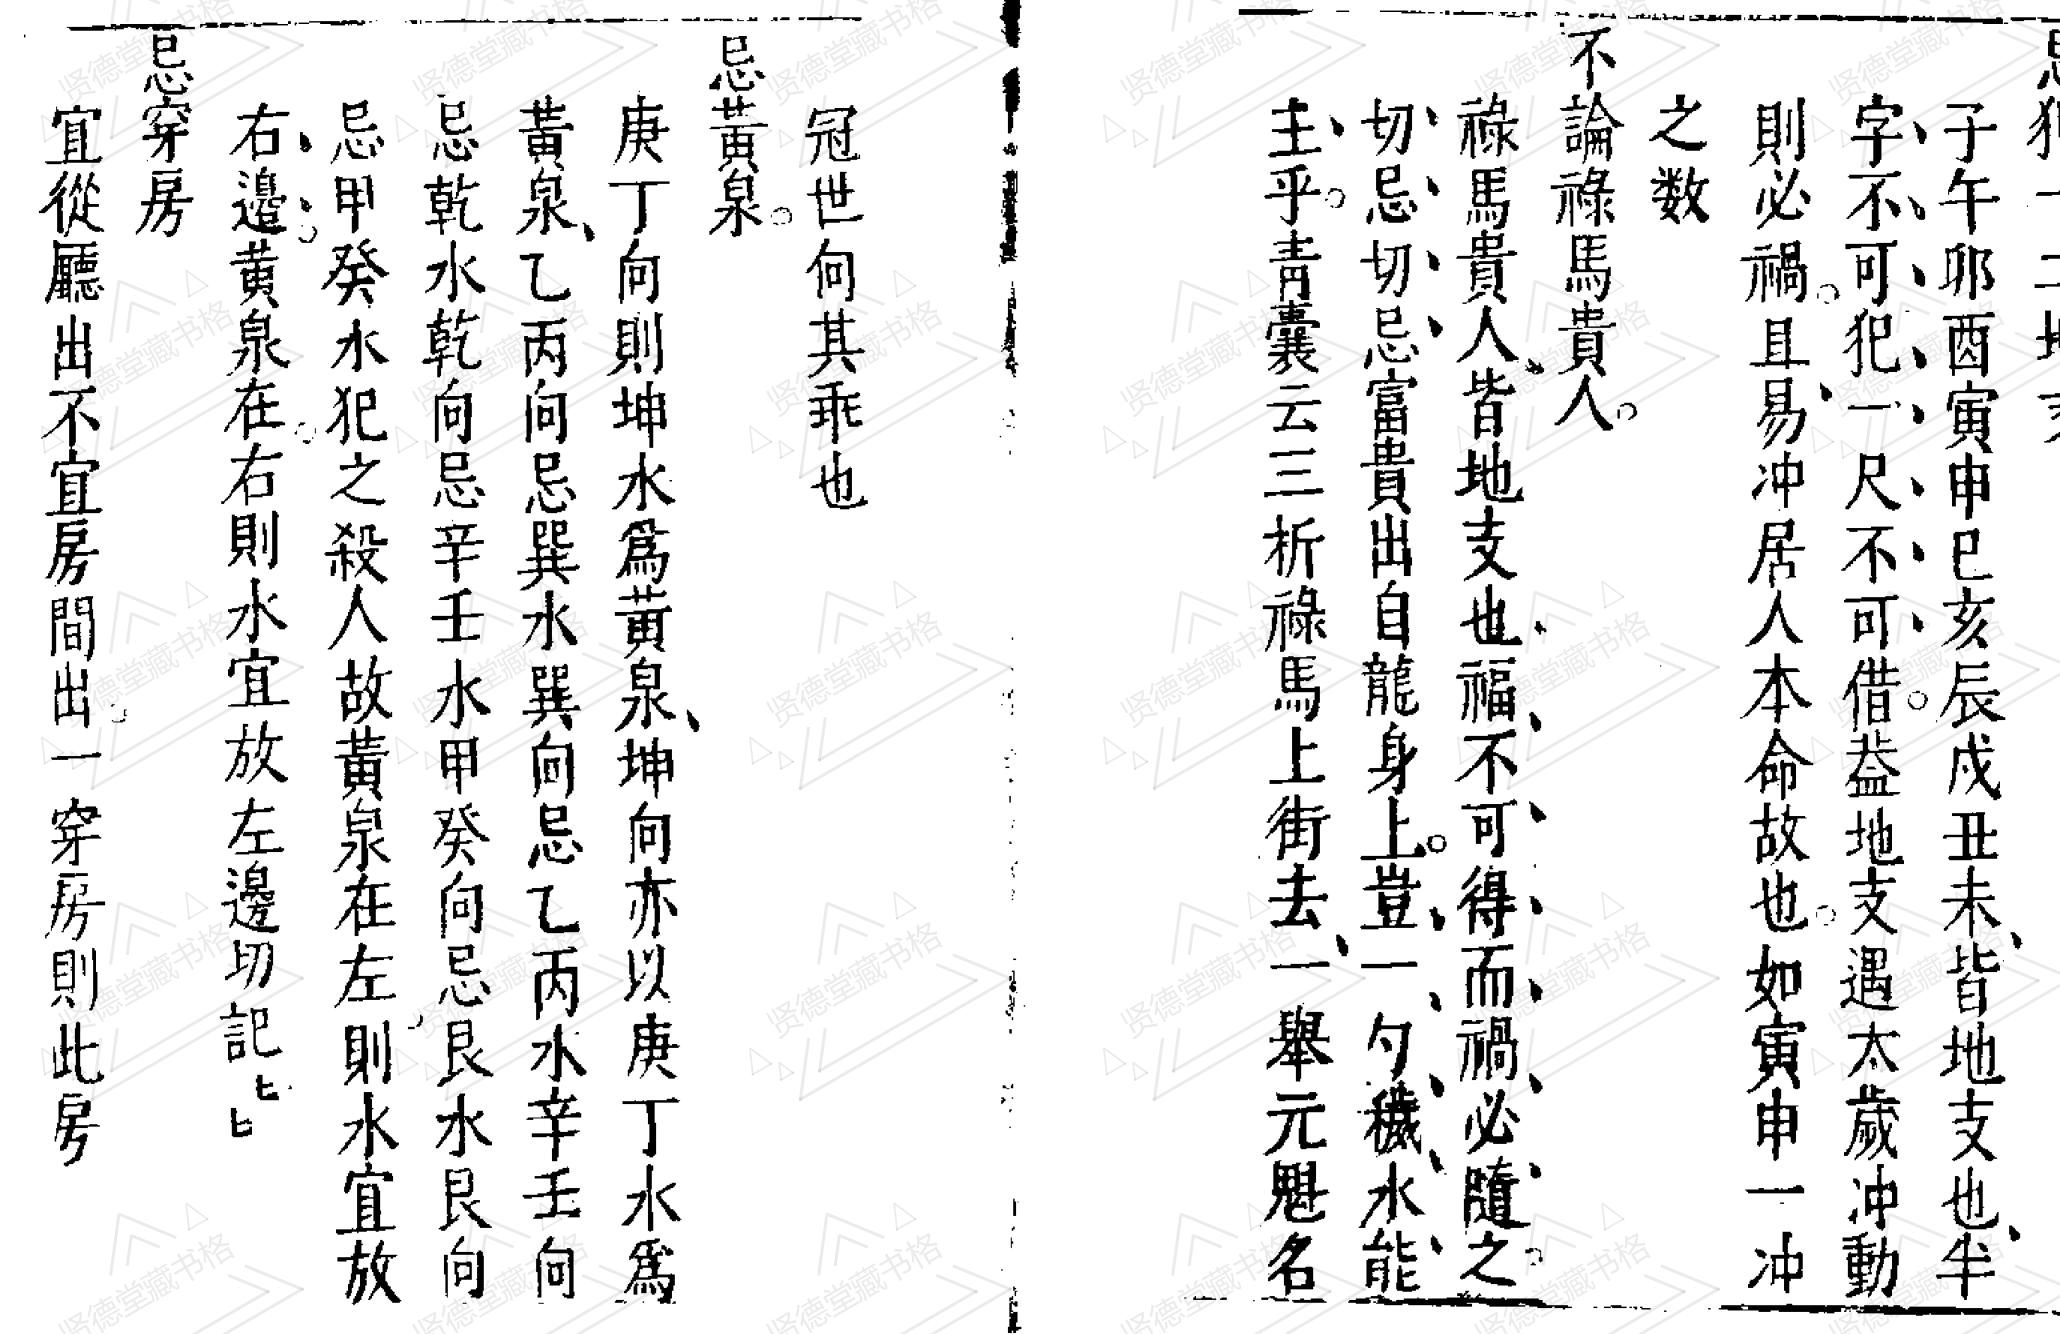 忌犯十二地支
子午卯酉寅申巳亥辰戌丑未、皆地支也、半
字不可犯一尺不可借。益地支遇太歲冲動
則必禍。且易冲居人本命故也。如寅申一冲
之数
不論祿馬貴人。
祿馬貴人、皆地支也、福不可得而禍必隨之。
切忌切忌富貴出自龍身上。豈一勺穢水能
主乎。青囊云三折祿馬上街去、一舉元魁名
冠世何其乖也
忌黃泉。
庚丁向則坤水爲黃泉、坤向亦以庚丁水爲
黃泉、乙丙向忌巽水巽向忌乙丙水辛壬向
忌乾水乾向忌辛壬水甲癸向忌艮水艮向
忌甲癸水犯之殺人故黃泉在左則水宜放
右邊。黄泉在右則水宜放左邊切記〻〻
忌穿房
宜從廳出不宜房間出。一穿房則此房
贤德堂藏书格